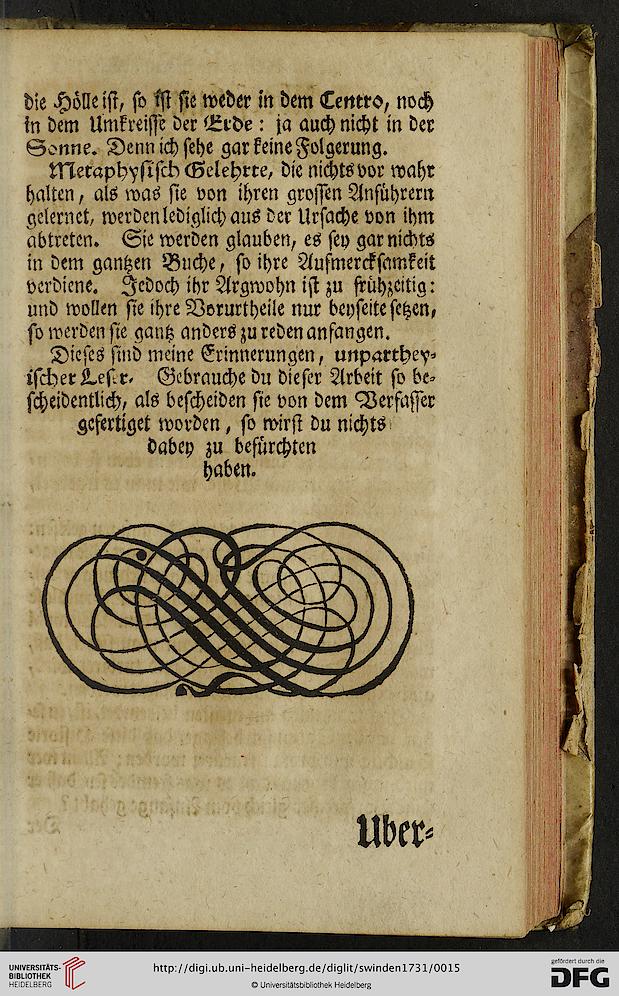 die Hölle ist, so ist sie weder in dem Centro, noch
in dem Umkreisse der Erde: ja auch nicht in der
Sonne. Denn ich sehe gar keine Folgerung.
Metaphysisch Gelehrte, die nichts vor wahr
halten, als was sie von ihren grossen Anführern
gelernet, werden lediglich aus der Ursache von ihm
abtreten. Sie werden glauben, es sey gar nichts
in dem gantzen Buche, so ihre Aufmercksamkeit
verdiene. Jedoch ihr Argwohn ist zu frühzeitig:
und wollen sie ihre Vorurtheile nur beyseite setzen,
so werden sie gantz anders zu reden anfangen.
Dieses sind meine Erinnerungen, unparthey-
ischer Leser. Gebrauche du dieser Arbeit so be-
scheidentlich, als bescheiden sie von dem Verfasser
gefertiget worden, so wirst du nichts
dabey zu befürchten
haben.
Uber-
UNIVERSITÄTS-
BIBLIOTHEK
HEIDELBERG
http://digi.ub.uni-heidelberg.de/diglit/swinden1731/0015
© Universitätsbibliothek Heidelberg
gefördert durch die
DFG